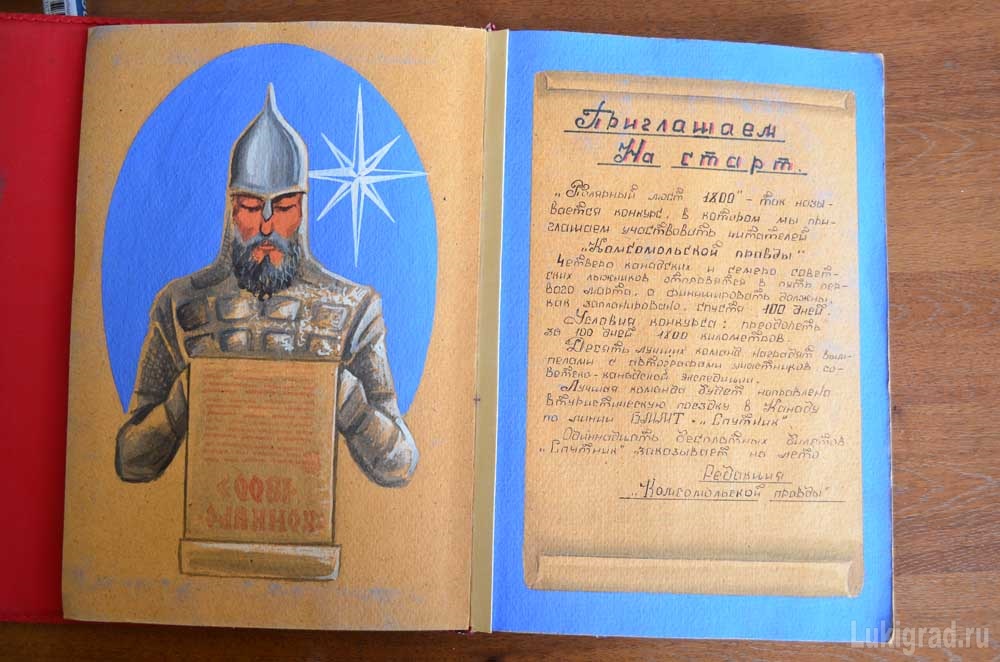 КОНКУРС
1800
Приглашаем
На старт.
„Полярный мост 1800" - так назы-
вается конкурс, в котором мы при-
глашаем участвовать читателей
„Комсомольской правды"
Четверо канадских и семеро совет-
ских лыжников отправятся в путь пер-
вого марта, а финишировать должны,
как запланировано, спустя 100 дней.
Условия конкурса: преодолеть
за 100 дней 1800 километров.
Десять лучших команд наградят вым-
пелами с автографами участников со-
ветско-канадской экспедиции.
Лучшая команда будет направлена
в туристическую поездку в Канаду
по линии БММТ „Спутник".
Одиннадцать бесплатных билетов
„Спутник" заказывает на лето
Редакция
„Комсомольской правды"
Lukigrad.ru